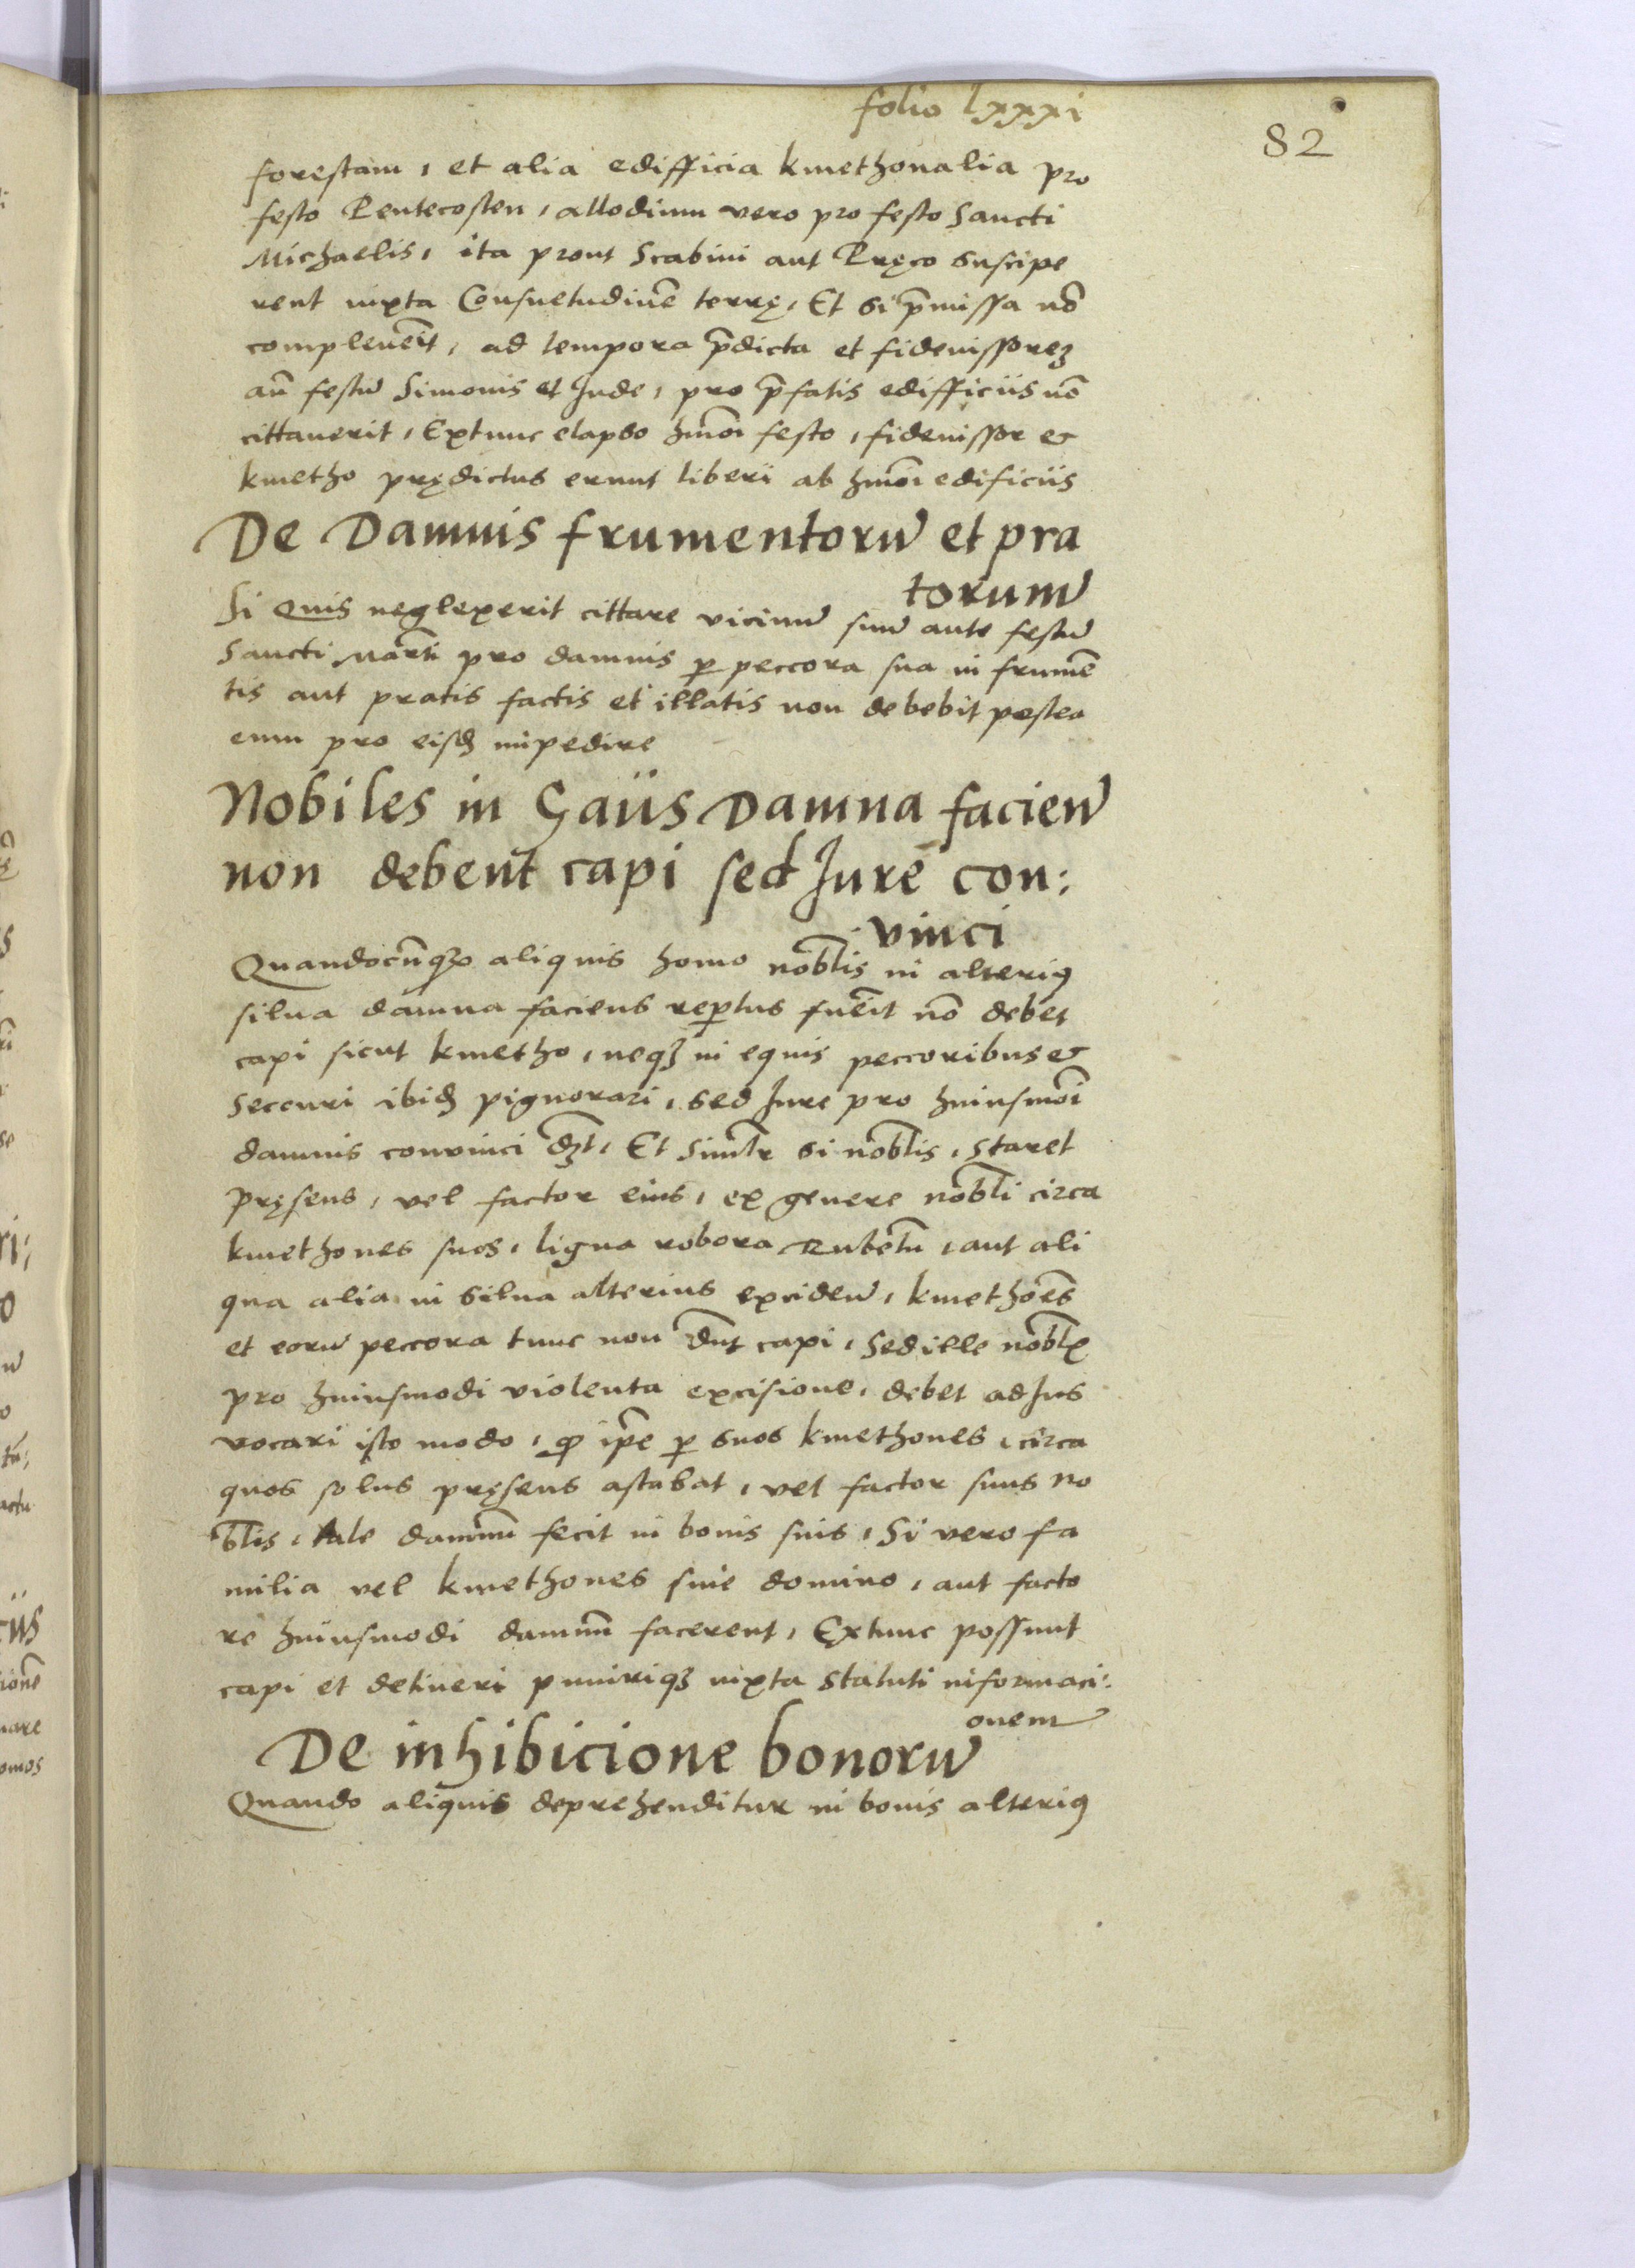 folio lxxxi
82
forestam, et alia edifficia kmethonalia pro
festo Pentecosten, allodium vero pro festo Sancti
Michaelis, ita prout Scabini aut Pręco suscipe
rent iuxta Consuetudinē terrę, Et si p̄missa nō
compleuerīt, ad tempora p̄dicta et fideiussorēȝ
an̄ festū Simonis et Jude, pro p̄fatis edifficiis nō
cittauerit, Extunc elapso hmōi festo, fideiussor et
kmetho prędictus erunt liberi ab hmōi edificiis
De Damnis frumentorū et pra
torum
Si Quis neglexerit cittare vicinū suū ante festū
Sancti Mārti pro damnis ꝑ peccora sua in frumē
tis aut pratis factis et illatis non debebit postea
eum pro eisđ impedire
Nobiles in Gaiis Damna facien̄
non debent capi sed Jure con:
vinci
Quandocūqꝫ aliquis homo nōblis in alteriꝰ
silua damna faciens rep̄tus fuerīt nō debet
capi sicut kmetho, neqꝫ in equis peccoribus et
Seccuri ibiđ pignorari, sed Jure pro huiusmōi
damnis convinci dꝫt, Et Simlr̄ si nōblis, staret
pręsens, vel factor eius, ex genere nōbli circa
kmethones suos, ligna robora Rubetū, aut ali
qua alia in silua alterius exciden̄, kmethōes
et eorū peccora tunc non dn̄t capi, Sed ille nōblꝭ
pro huiusmodi violenta excisione, debet ad Jus
vocari isto modo, ꝙ ip̄e ꝑ suos kmethones, circa
quos solus pręsens astabat, vel factor suus no
blis, tale damnū fecit in bonis suis, Si vero fa
milia vel kmethones sine domino, aut facto
re huiusmodi damnū facerent, Extunc possunt
capi et detineri puniriqꝫ iuxta Statuti informaci:
onem
De inhibicione bonorū
Quando aliquis deprehenditur in bonis alteriꝰ